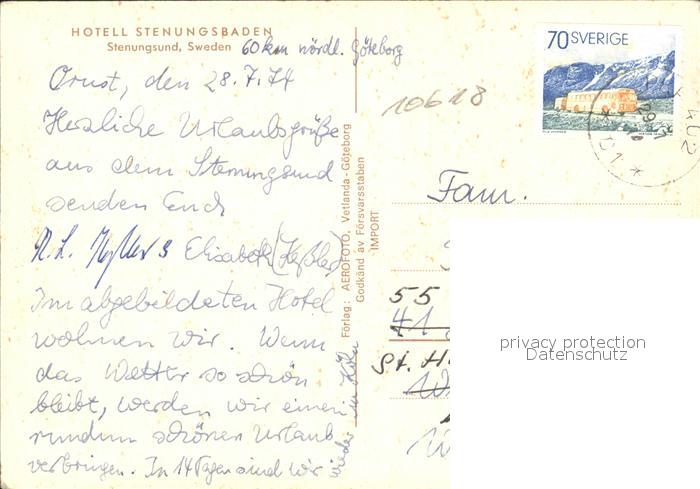 HOTELL STENUNGSBADEN
Stenungsund, Sweden
60 km nördl. Göteborg
Orust, den 28.7.74
Herzliche Urlaubsgrüße
aus dem Stenungsund
senden Euch
Elisabeth (Keßler)
Im abgebildeten Hotel
wohnen wir. Wenn
das Wetter so schön
bleibt, werden wir einen
rundum schönen Urlaub
verbringen. In 14 Tagen sind wir
wieder in Köln
Förlag: AEROFOTO, Vetlanda - Göteborg
Godkänd av Försvarsstaben
IMPORT
70 SVERIGE
10618
Fam.
55
41
St. H
privacy protection
Datenschutz